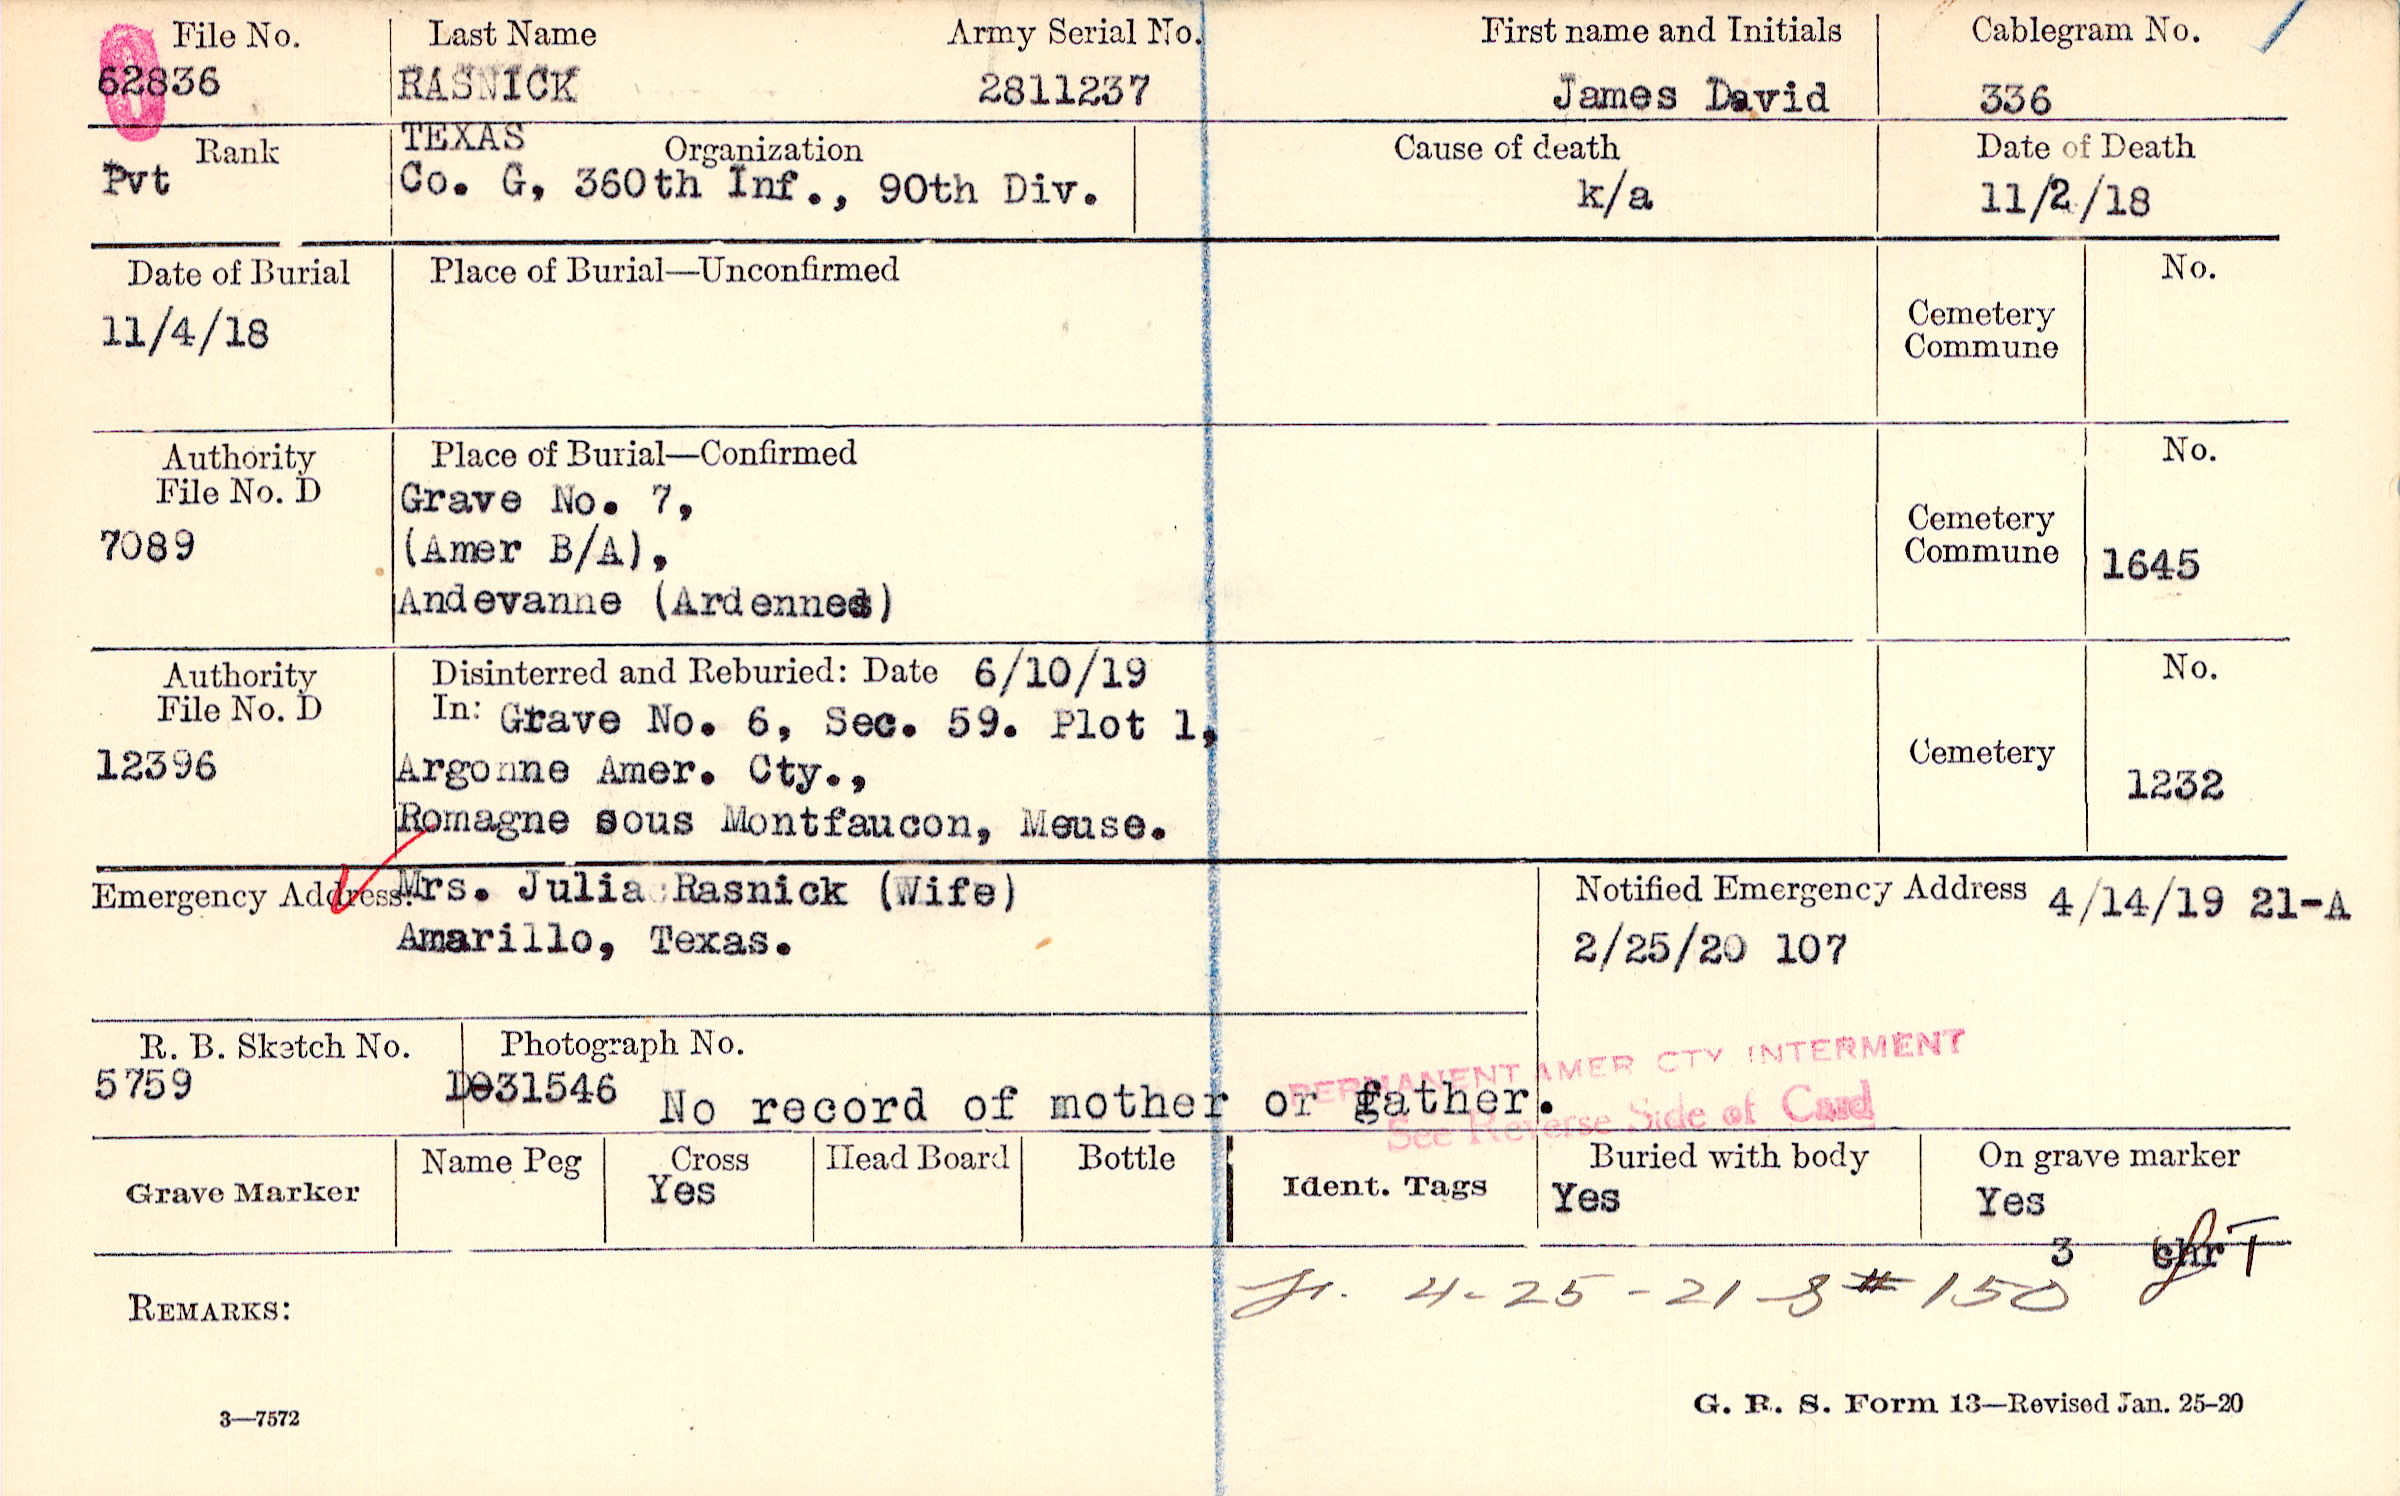 File No. Last Name Army Serial No. First name and Initials Cablegram No.
62836 RASNICK 2811237 James David 336
TEXAS
Rank Organization Cause of death Date of Death
Pvt Co. G, 360th Inf., 90th Div. k/a 11/2/18
Date of Burial Place of Burial—Unconfirmed No.
11/4/18
Cemetery
Commune
Authority Place of Burial—Confirmed No.
File No. D
Grave No. 7,
7089 (Amer B/A),
Cemetery
Commune 1645
Andevanne (Ardennes)
Authority Disinterred and Reburied: Date 6/10/19 No.
File No. D In: Grave No. 6, Sec. 59. Plot 1,
12396 Argonne Amer. Cty., Cemetery 1232
Romagne sous Montfaucon, Meuse.
Emergency Address: Mrs. Julia Rasnick (Wife) Notified Emergency Address 4/14/19 21-A
Amarillo, Texas. 2/25/20 107
R. B. Sketch No. Photograph No.
PERMANENT AMER CTY INTERMENT
5759 D031546 No record of mother or father.
See Reverse Side of Card
Grave Marker Name Peg Cross Head Board Bottle Ident. Tags Buried with body On grave marker
Yes Yes Yes
3 chr
4-25-21 # 150
REMARKS:
3—7572 G. R. S. Form 13—Revised Jan. 25-20